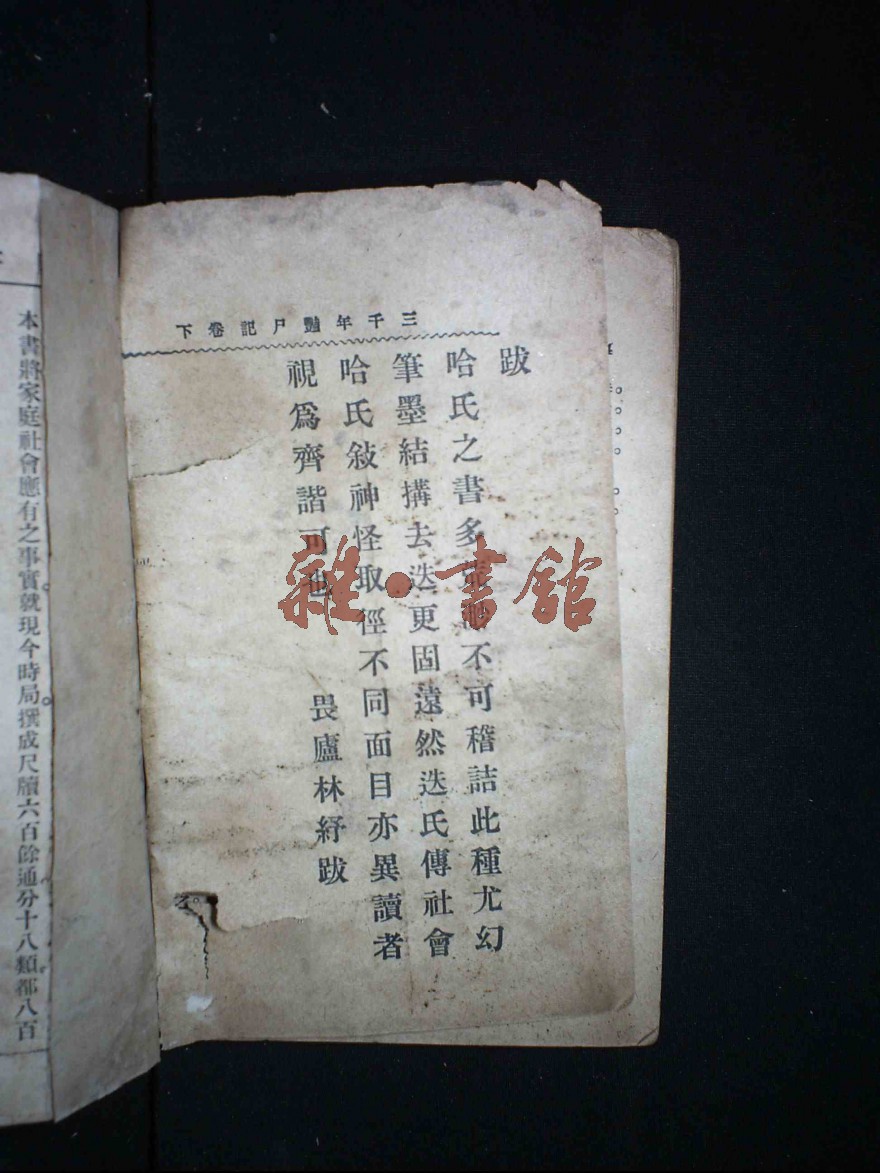 三千年豔尸記卷下
跋
哈氏之書多不可稽詰此種尤幻
筆墨結搆去迭更固遠然迭氏傳社會
哈氏敍神怪取徑不同面目亦異讀者
視爲齊諧可也
畏廬林紓跋
雜·書館
本書將家庭社會應有之事實就現今時局撰成尺牘六百餘通分十八類都八百